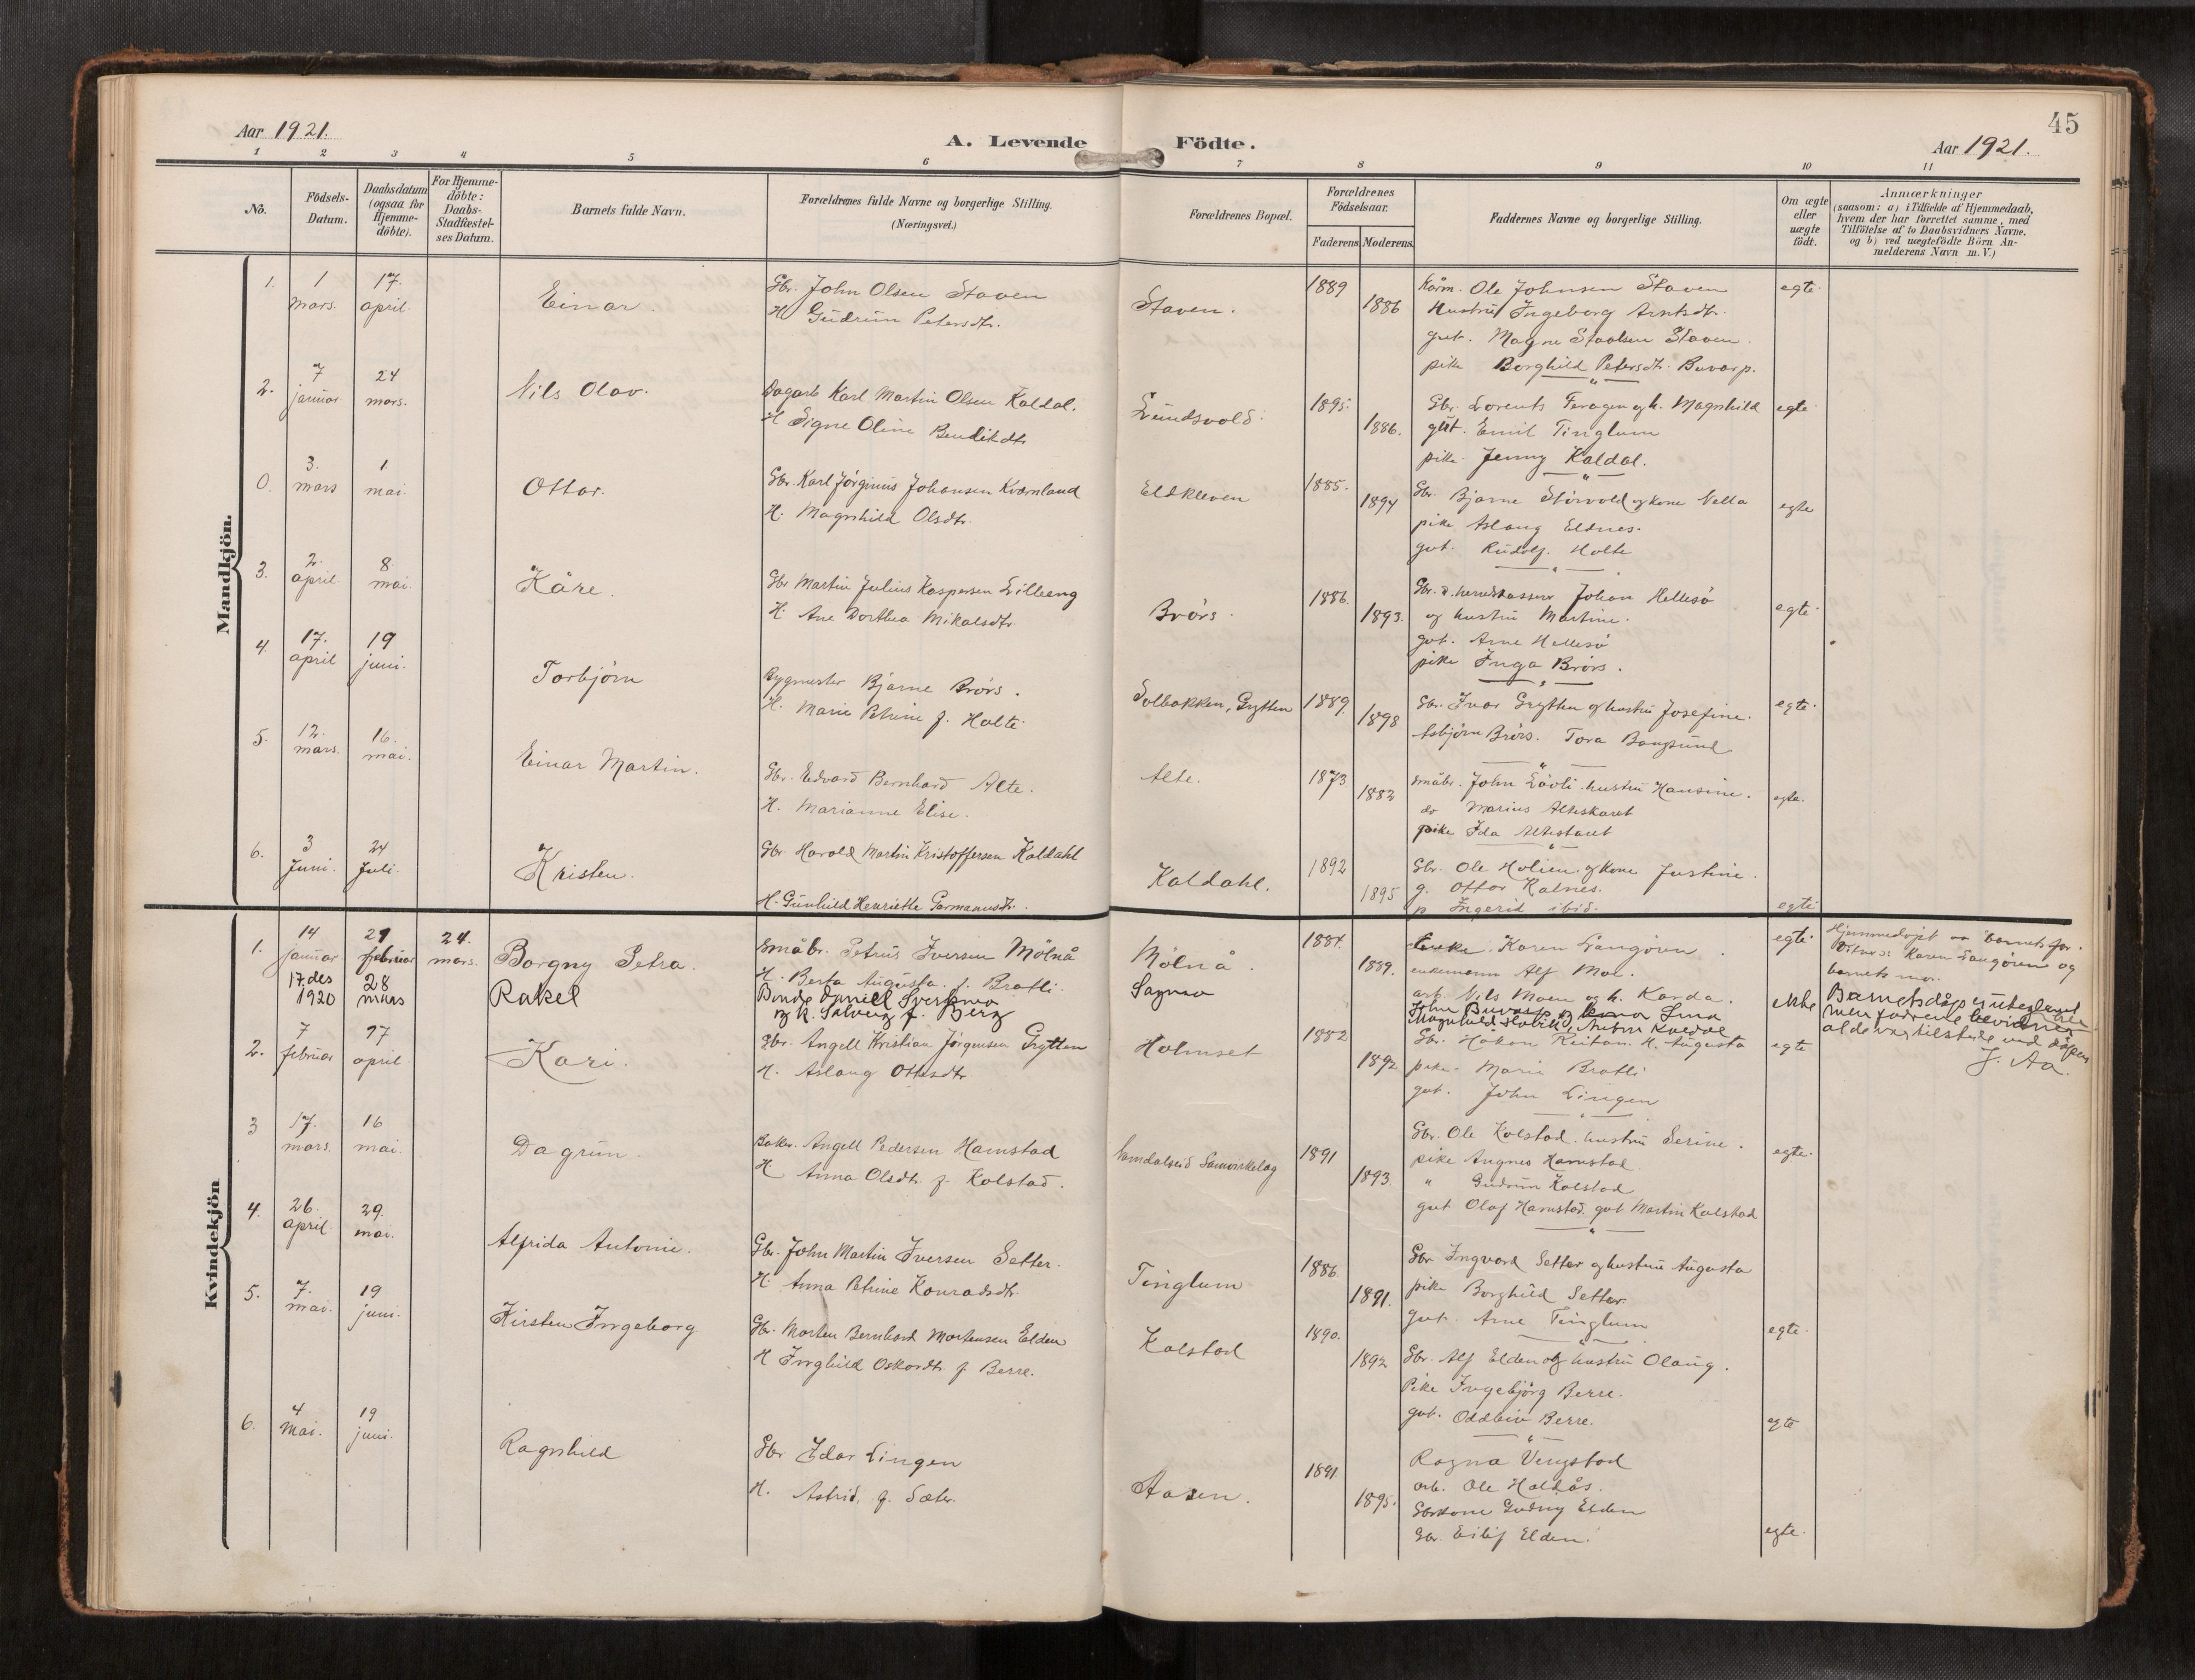 45
Aar 1921.
A. Levende Födte.
Aar 1921.
1 2 3 4 5 6 7 8 9 10 11
No.
Födsels-Datum.
Daabsdatum (ogsaa for Hjemme-döbte).
For Hjemme-döbte: Daabs-Stadfæstel-ses Datum.
Barnets fulde Navn.
Forældrenes fulde Navne og borgerlige Stilling. (Næringsvei.)
Forældrenes Bopæl.
Forældrenes Födselsaar.
Faderens Moderens
Faddernes Navne og borgerlige Stilling.
Om ægte eller uægte födt.
Anmærkninger
(saasom: a) i Tilfælde af Hjemmedaab, hvem der har forrettet samme, med Tilföielse af to Daabsvidners Navne. og b) ved uægtefödte Börn An-melderens Navn m. V.)
Mandkjön.
1. 1 mars. 17. april. Einar.
Gbr. John Olsen Staven
H Gudrun Petersdtr.
Staven. 1889 1886
Kårm. Ole Johnsen Staven
Hustru Ingeborg Arntsdtr.
gut. Magne Staven.
pike Borghild Petersdtr. Buvarp.
egte
2. 7 januar 24 mars. Nils Olav.
Dagarb Karl Martin Olsen Kaldal.
H Signe Oline Benditdtr
Lundsvold. 1895. 1886.
Gbr. Lorents Feragen og h. Magnhild
gut. Emil Tinglum
pike Jenny Kaldal.
egte
0. 3. mars 1 mai. Ottar.
Gbr. Karl Jørginus Johansen Kvarnland
H. Magnhild Olsdtr.
Eldkleven 1885. 1894
Gbr. Bjarne Størvold og kone Nella
pike Aslaug Eldnes.
gut. Rudolf Holte
egte
3. 2. april 8. mai. Kåre.
Gbr Martin Julius Kaspersen Lilleeng
H. Ane Dorthea Mikalsdtr.
Brörs. 1886. 1893.
Gbr. Johan Hellesö
og hustru Martine.
gut. Arne Hellesö
pike Inga Brörs.
egte
4. 17. april 19 juni. Torbjörn
Bygmester Bjarne Brörs.
H. Marie f. Holte.
Solbakken, Grytten 1889 1898
Gbr. Ivar Grytten og hustru Josefine.
Asbjörn Brörs. Tora Bangsund
egte
5. 12. mars. 16. mai. Einar Martin.
Gbr. Edvard Bernhard Alte.
H. Marianne Elise.
Alte. 1873 1882
småbr. John Lövli. hustru Hansine.
do Marius Alteskaret
pike Ida Alteskaret
egte.
6. 3 Juni. 24 Juli. Kristen.
Gbr Harald Martin Kristoffersen Kaldahl
H. Gunhild Henriette Germanusdtr.
Kaldahl. 1892 1895
Gbr. Ole Holien og kone Justine.
g. Ottar Kalnes.
p Ingerid ibid.
egte
Kvindekjön
1. 14 januar 27 februar 24. mars. Borgny Petra.
Småbr. Petrus Iversen Mölnå
H. Berta Augusta. f. Bratli.
Mölnå. 1884. 1889.
Enke. Karen Langören.
enkemann Alf Moe.
arb. Nils Moen og h. Karda.
egte
Hjemmedöpt av barnets far.
Karen Langören og
barnets mor.
17.des 1920 28 mars Rakel
Bonde Daniel
og k. Solveig f. Berg
Sagmo
John Buvarp og kona
Magnhild
ekte
Barnets dåp er utegløymt
men fadrene bevidner
at de var tilstede ved dåpen
J. Aa.
2. 7 februar 17 april Kari.
Gbr. Angell Kristian Jörgensen Grytten
H. Aslaug Ottesdtr.
Holmset 1882 1892
Gbr. Håkon Reitan. H. Augusta
pike Marie Bratli
gut. John Lingen
egte
3 17. mars. 16 mai. Dagrun.
Baker. Angell Pedersen Hamstad
H Anna Olsdtr. f. Kolstad.
Namdalseid Samvirkelag 1891 1893.
Gbr. Ole Kolstad. hustru Serine.
pike Augnes Hamstad.
" Gudrun Kolstad
gut Olaf Hamstad. gut Martin Kolstad
egte
4. 26. april 29. mai. Alfrida Antonie.
Gbr. John Martin Iversen Setter.
H. Anna Petrine Konradsdtr.
Tinglum 1886. 1891.
Gbr Ingvard Setter og hustru Augusta
pike Borghild Setter.
gut. Arne Tinglum
egte.
5. 7. mai. 19 juni. Kirsten Ingeborg
Gbr. Morten Bernhard Mortensen Elden
H Inghild Oskardtr. f. Berre.
Kalstad 1890. 1892
Gbr. Alf Elden og hustru Olaug.
Pike Ingebjörg Berre.
gut. Oddleiv Berre.
egte
6. 4 Mai. 19 juni. Ragnhild
Gbr Idar Lingen
H. Astrid, f. Sæter.
Aasen. 1891 1895.
Ragna Vengstad
arb. Ole Haldås.
Gbrkone Gudny Elden
Gbr. Eilif Elden.
egte.